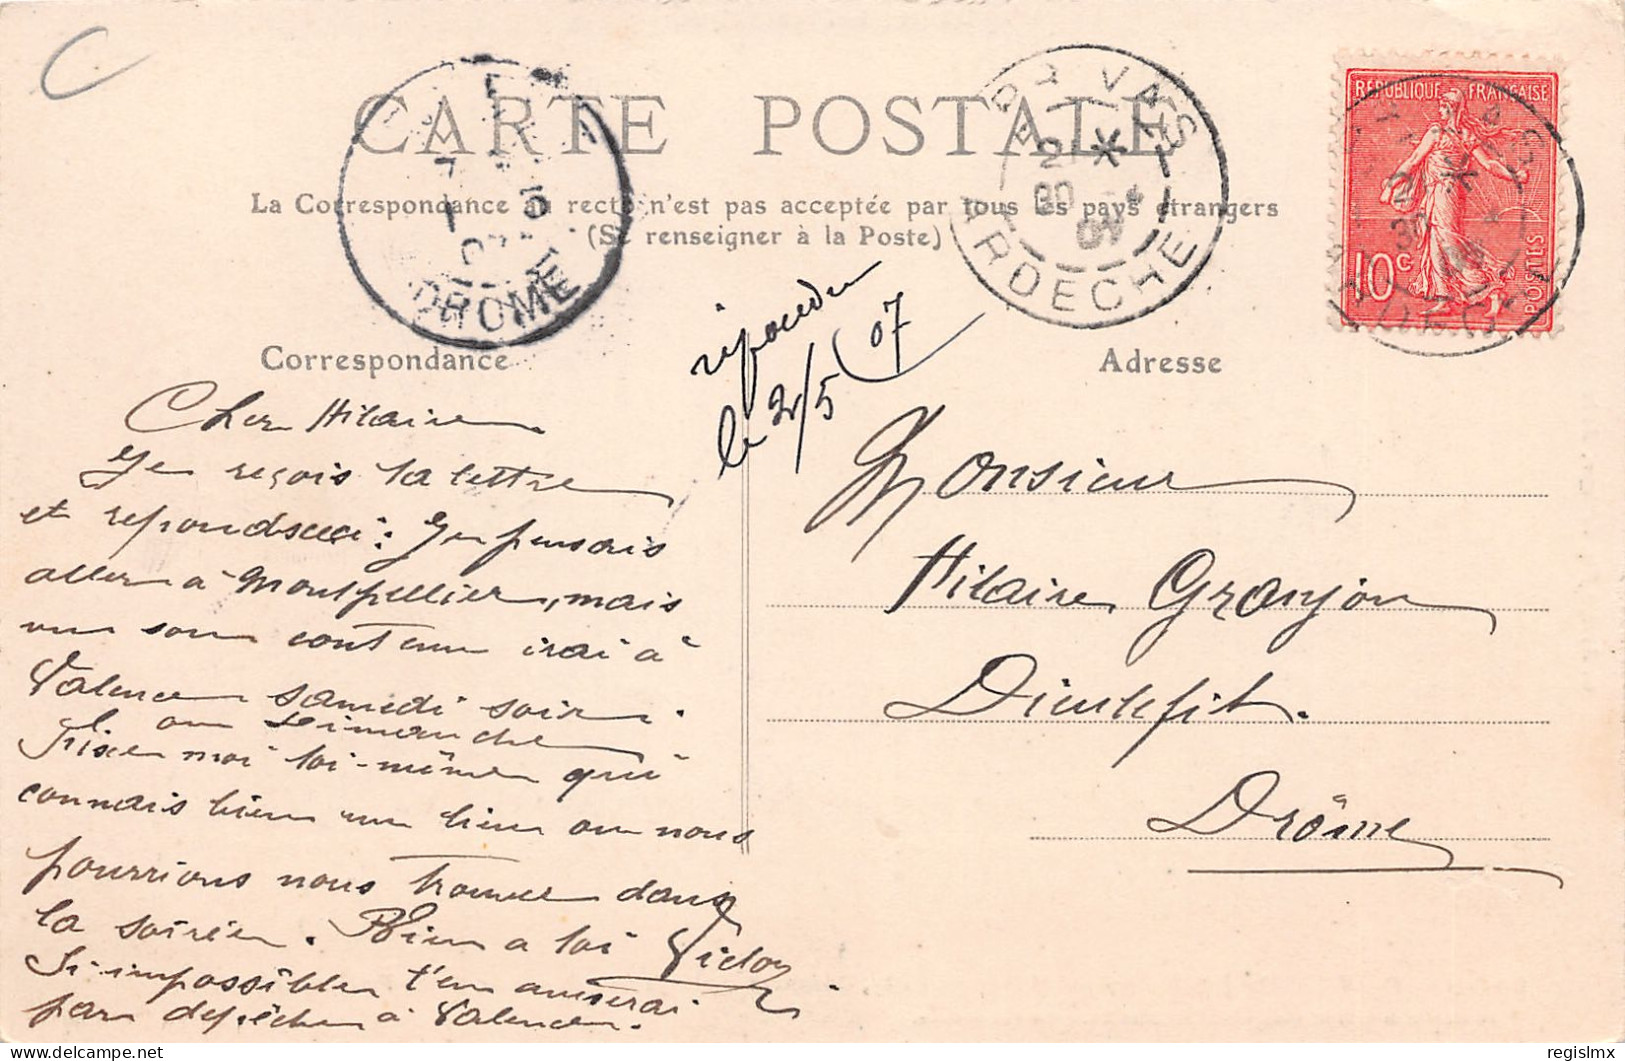 CARTE POSTALE
La Correspondance au recto n'est pas acceptée par tous les pays étrangers
(Se renseigner à la Poste)
LES VANS
ARDECHE
DROME
RÉPUBLIQUE FRANÇAISE
10 c
POSTES
Correspondance
Adresse
le 2/5 07
Cher Hilaire
Je reçois ta lettre
et reponds: Je pensais
aller à Montpellier, mais
irai à
Valence samedi soir.
ou Dimanche
Fixe moi toi-même qui
connais bien un lieu ou nous
pourrions nous trouver dans
la soirée. Bien a toi Victor
Si impossible t'en aviserai
par depêche à Valence.
Monsieur
Hilaire Granjon
Dieulefit.
Drôme
regislmx